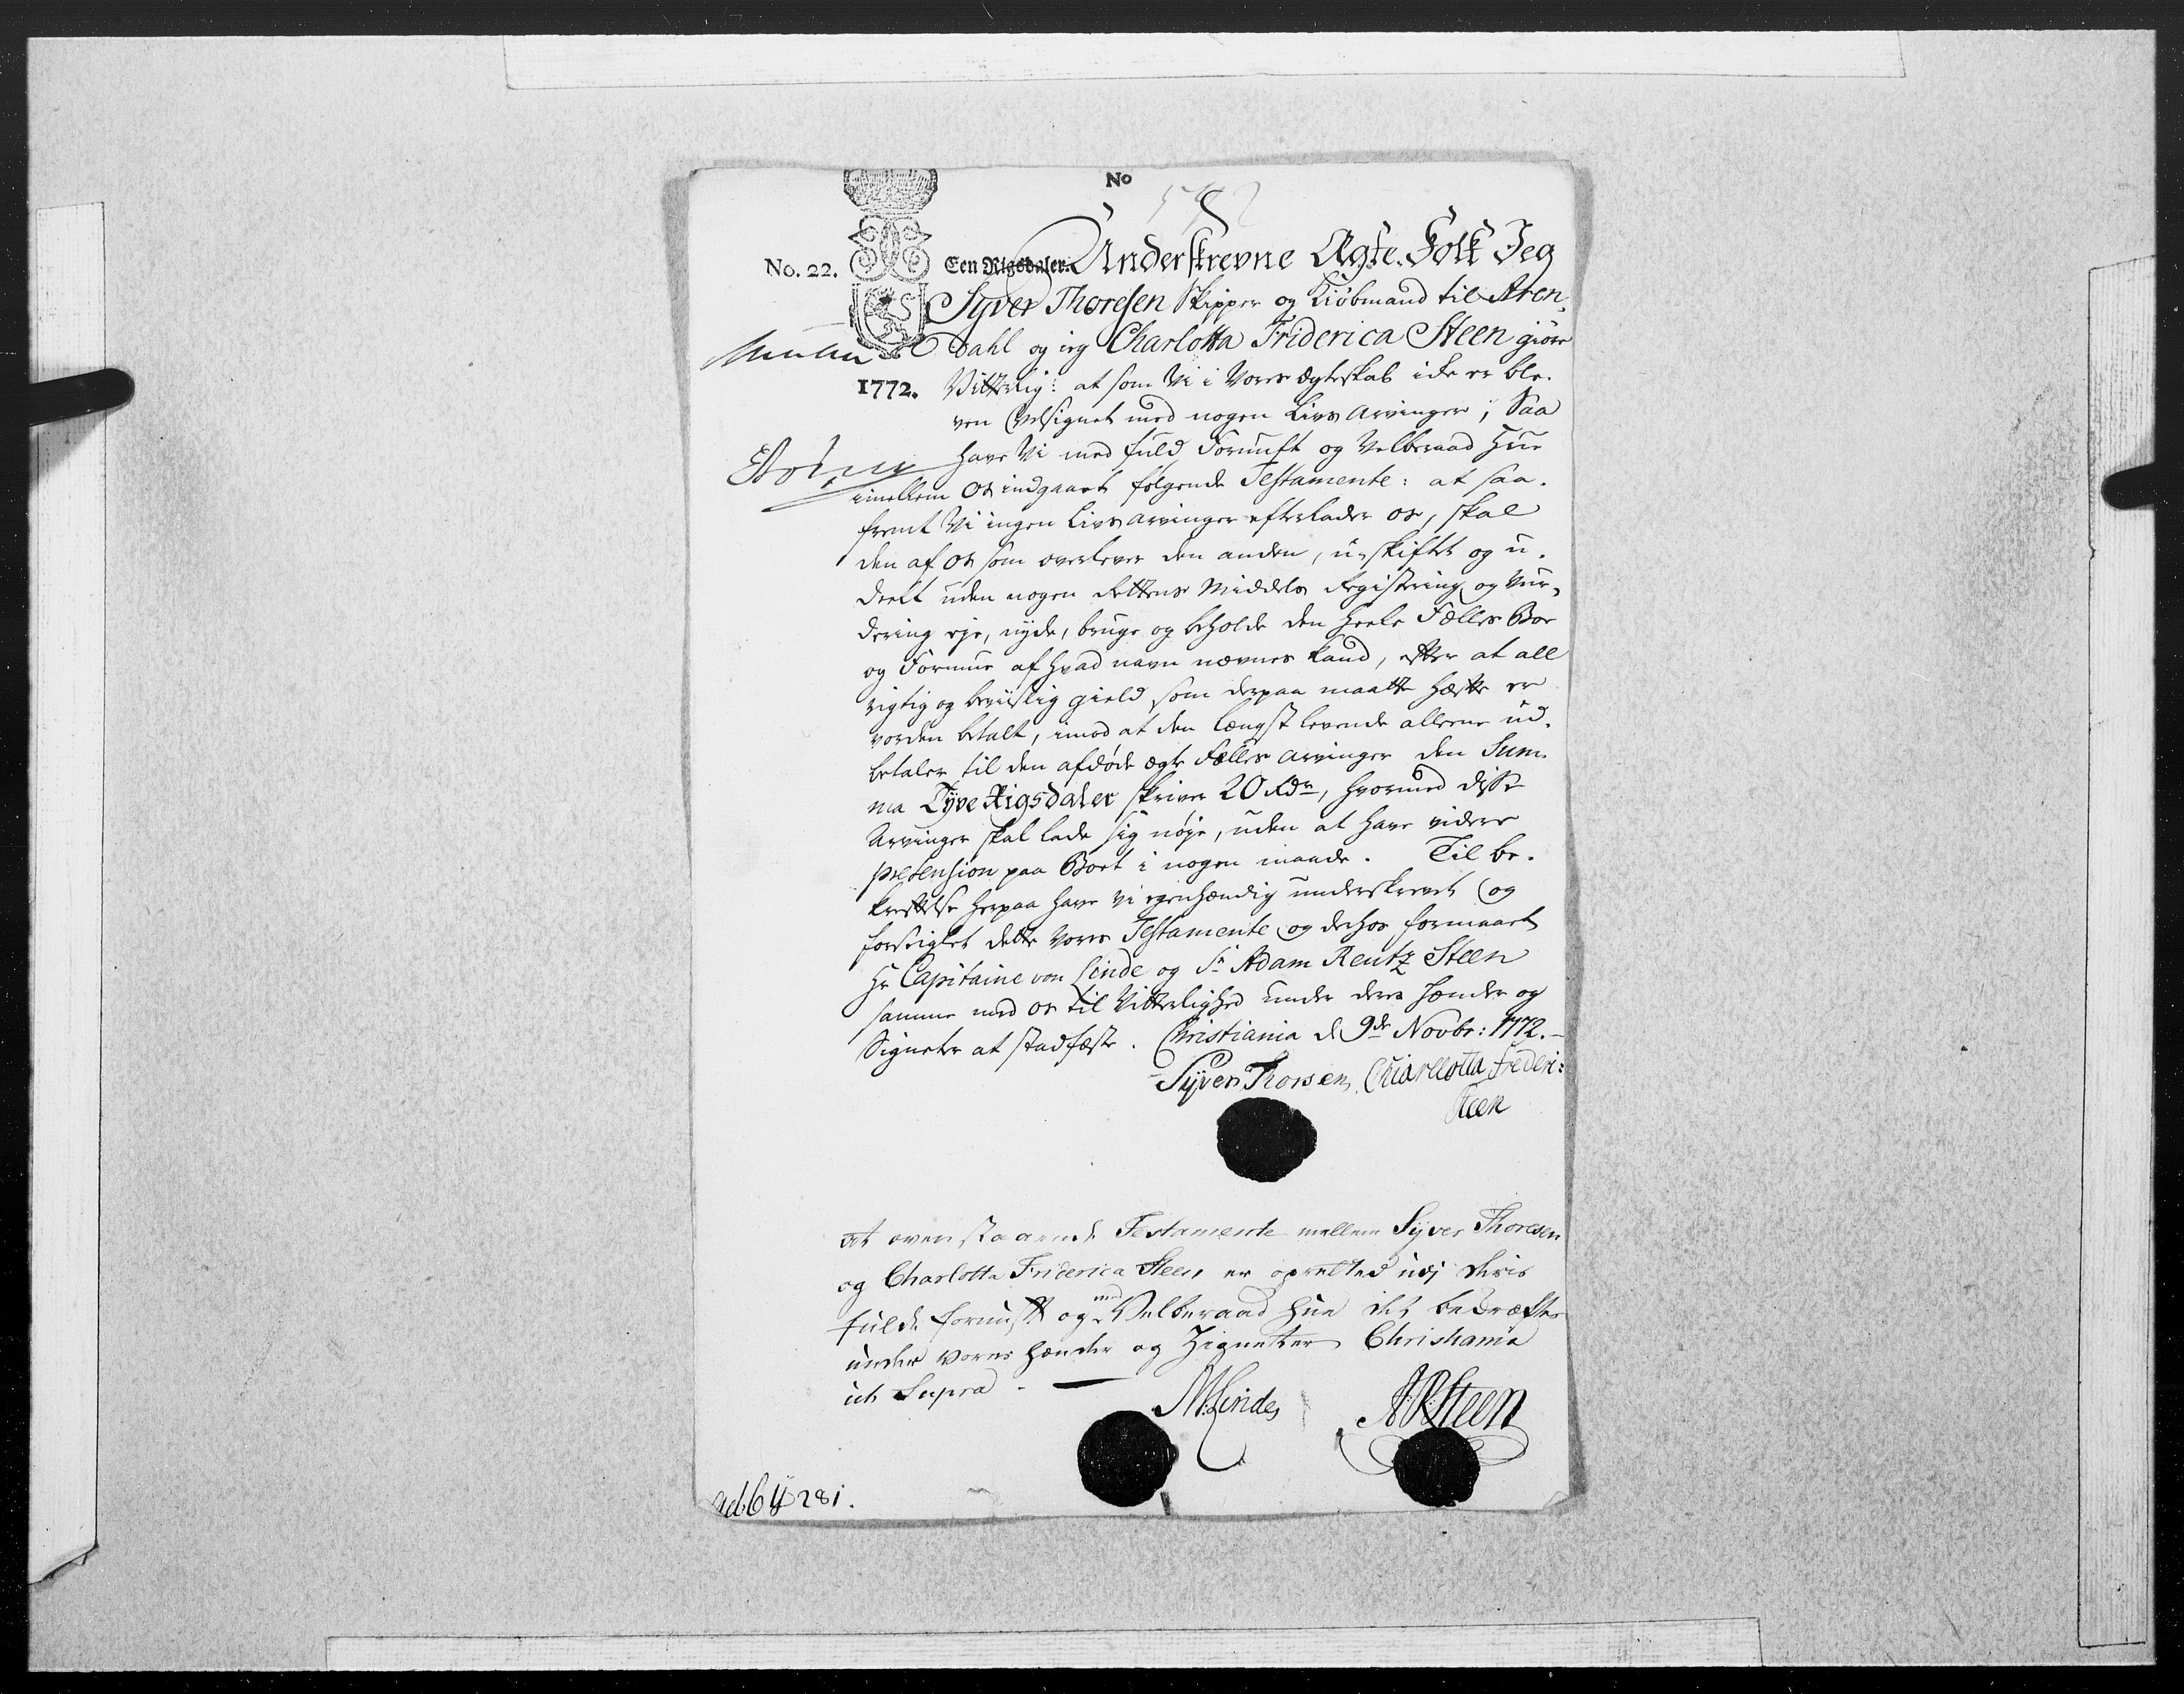 No
No. 22. Een Rigsdaler. Underskrevne Ægte-Folk Jeg
Syver Thoresen Skipper og Kiöbmand til Aren-
dahl og ieg Charlotta Friderica Steen giöre
1772. Vitterlig: at som Vi i Vores Ægteskab icke er ble-
ven Velsignet med nogen Livs Arvinger; Saa
have Vi med fuld Fornuft og Velberaad Hue
imellem os indgaaet fölgende Testamente: at saa-
fremt Vi ingen Livs Arvinger efterlader os, skal
den af os som overlever den anden, u-skiftet og u-
deelt uden nogen Rettens Middels Registering og Vur-
dering eje, nyde, bruge og beholde den heele Fælles Boe
og Formue af hvad navn nævnes kand, efter at all
rigtig og beviislig gield som derpaa maatte hæfte er
vorden betalt, imod at den længst levende alleene ud-
betaler til den afdöde ægte Fælles Arvinger den Sum-
ma Tyve Rigsdaler skriver 20 Rdr, hvormed disse
Arvinger skal lade sig nöje, uden at have videre
prætension paa Boet i nogen maade. Til be-
kreftelse herpaa have vi egenhændig underskrevet og
forseiglet dette Vores Testamente og derhos formaaet
Hr Capitaine von Linde og Sr Adam Reutz Steen
samme med os til Vitterlighed under deres Hænder og
Signeter at stadfæste. Christiania d 9de Novbr: 1772.-
Syver Thorsen, Charllotta Frederi:
Steen
at ovenstaaende Testamente mellem Syver Thoresen
og Charlotta Friderica Steen er opretted udj deris
fulde fornuft og med Velberaad Hue det bekræfter
under vores hænder og Zignetter Christiania
ut Supra -
M: Linde, ARSteen
281.